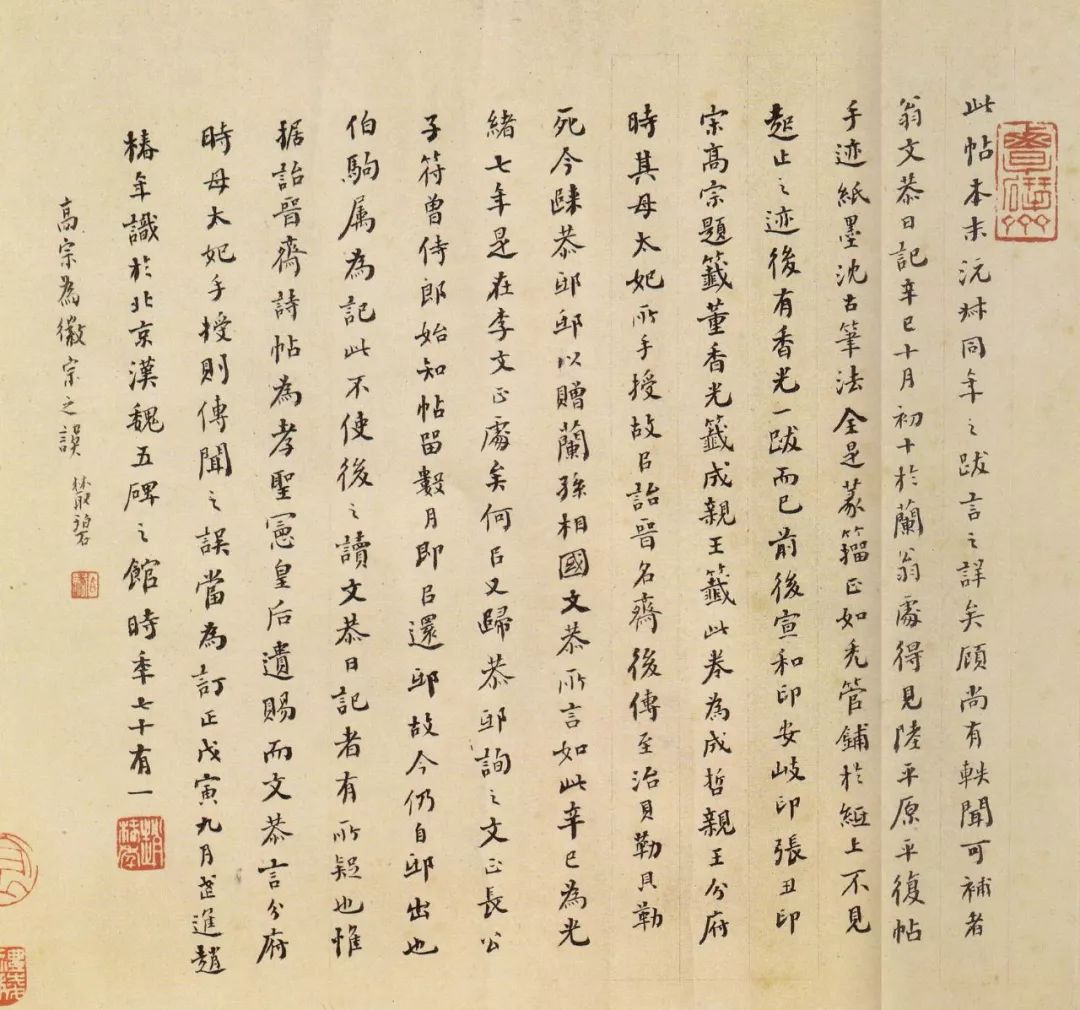 此帖本末沅叔同年之跋言之詳矣顧尚有軼聞可補者
翁文恭日記辛巳十月初十於蘭翁處得見陸平原平復帖
手迹紙墨沈古筆法全是篆籀正如禿管鋪於紙上不見
起止之迹後有香光一跋而已前後宣和印安岐印張丑印
宗高宗題籤董香光籤成親王籤此卷為成哲親王分府
時其母太妃所手授故㠯詒晉名齋後傳至治貝勒貝勒
死今歸恭邸邸以贈蘭孫相國文恭所言如此辛巳為光
緒七年是在李文正處矣何㠯又歸恭邸詢之文正長公
子符曾侍郎始知帖留數月即㠯還邸故今仍自邸出也
伯駒属為記此不使後之讀文恭日記者有所疑也惟
据詒晉齋詩帖為孝聖憲皇后遺賜而文恭言分府
時母太妃手授則傳聞之誤當為訂正戊寅九月芷進趙
椿年識於北京漢魏五碑之館時年七十有一
高宗為徽宗之誤